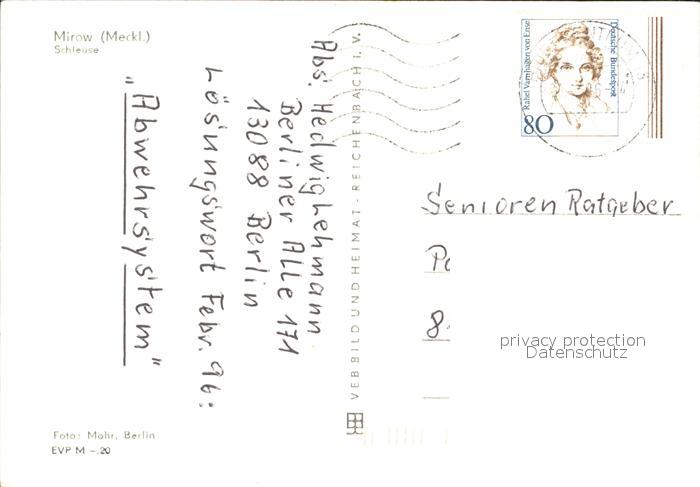 Mirow (Meckl.)
Schleuse
Abs. Hedwig Lehmann
Berliner Alle 171
13088 Berlin
Lösungswort Febr. 96:
"Abwehrsystem"
Foto: Mohr, Berlin
EVP M -,20
VEB BILD UND HEIMAT · REICHENBACH i. V.
Rahel Varnhagen von Ense
Deutsche Bundespost
80
Senioren Ratgeber
8
privacy protection
Datenschutz